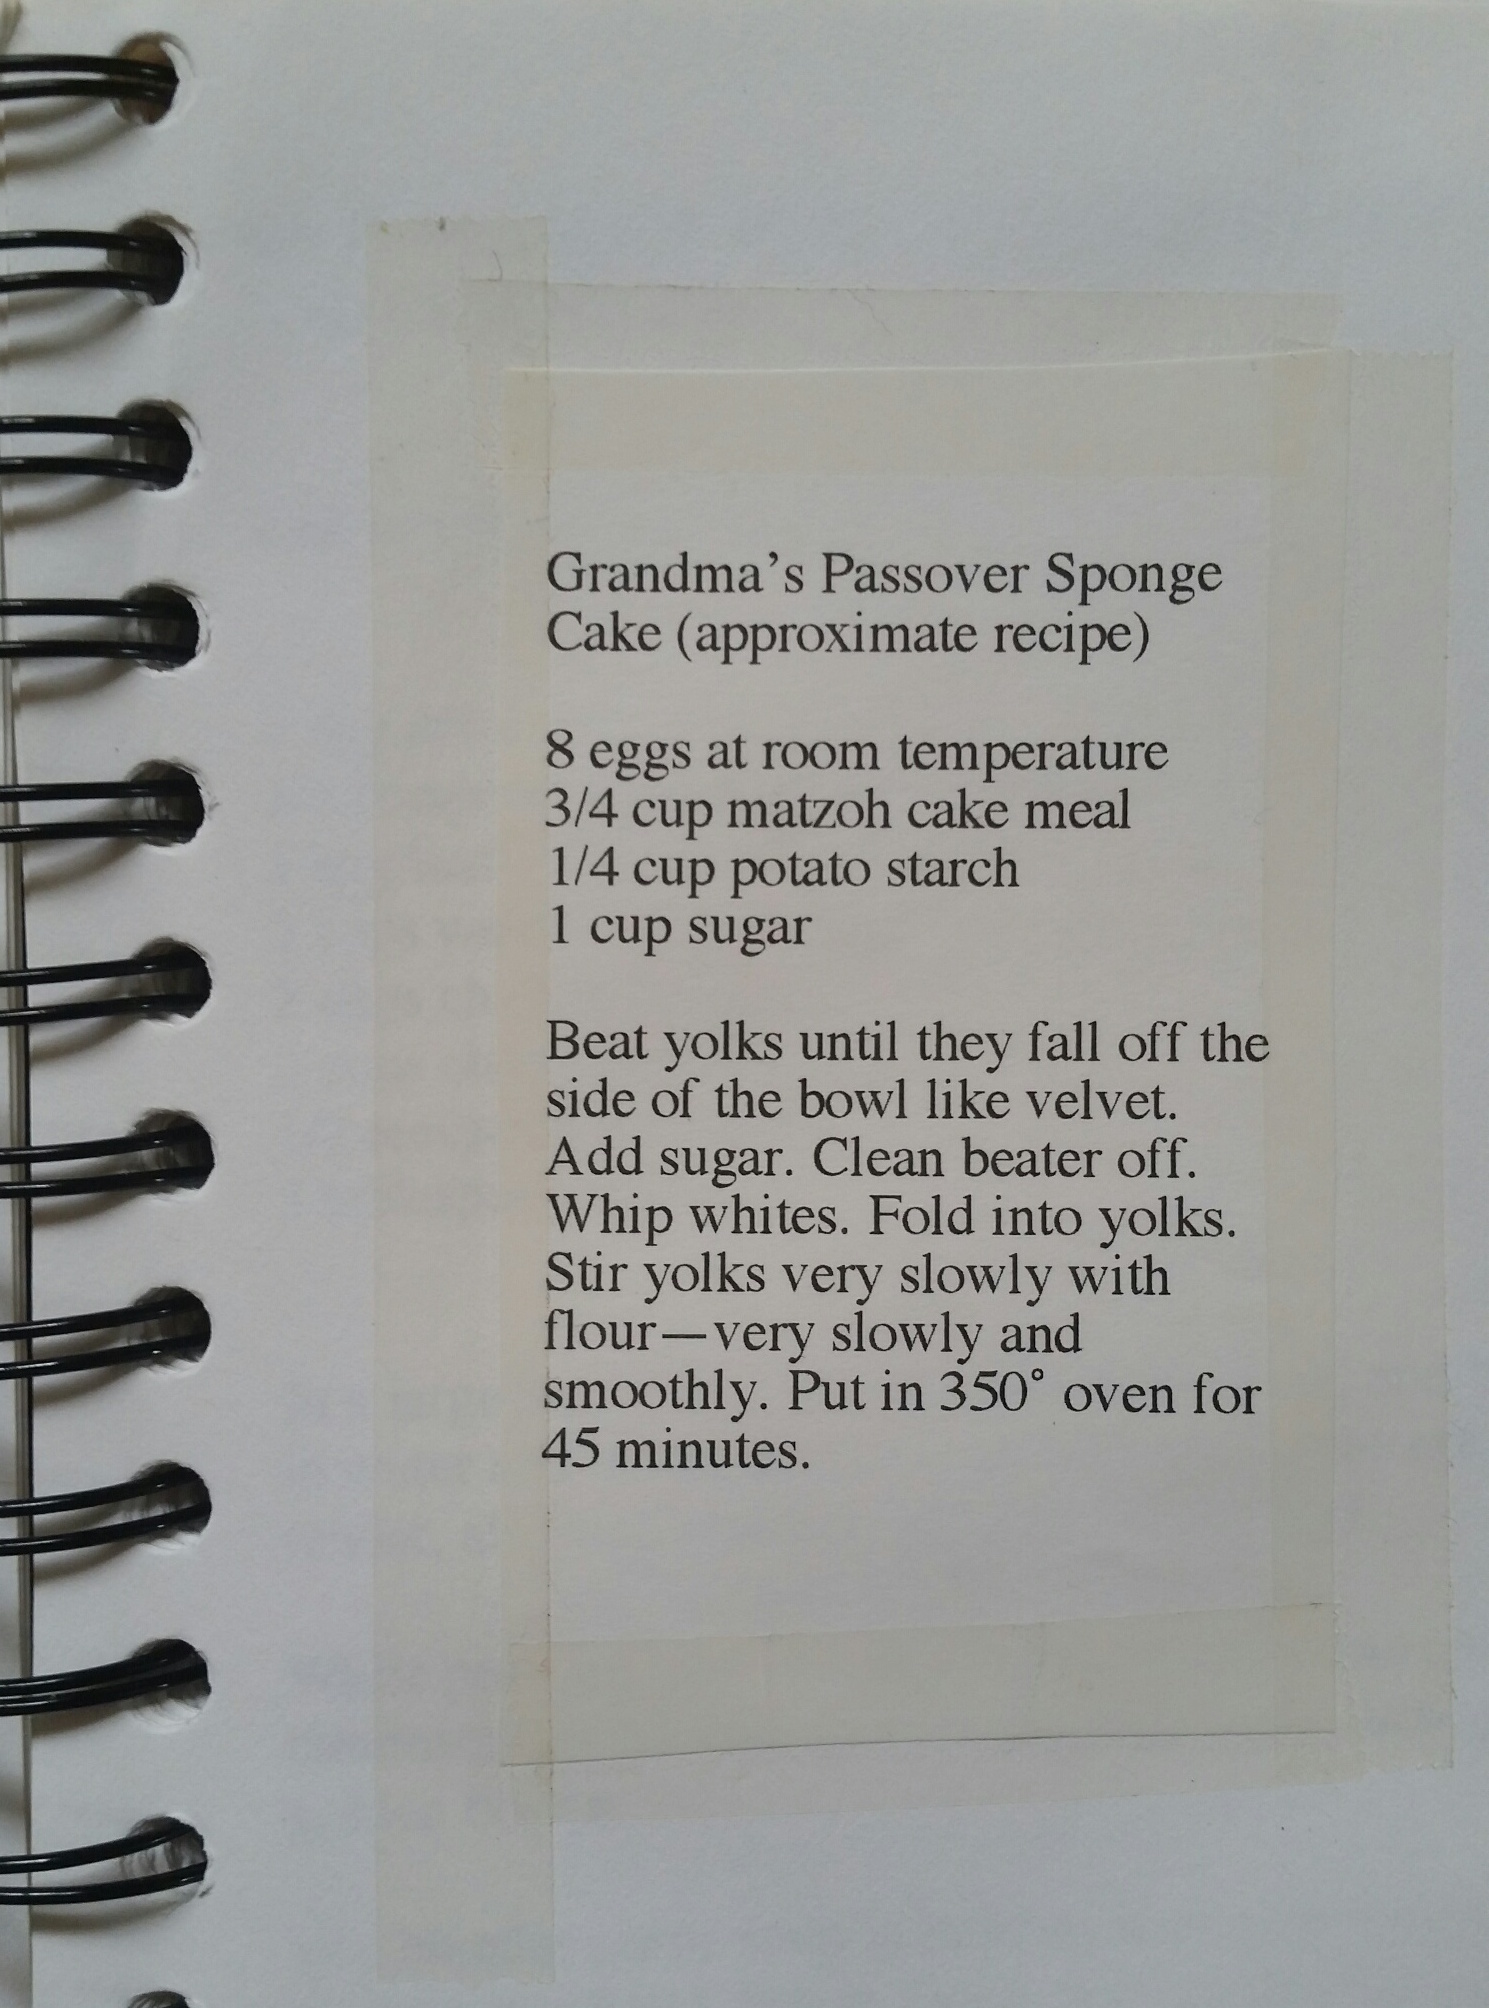 Grandma’s Passover Sponge
Cake (approximate recipe)
8 eggs at room temperature
3/4 cup matzoh cake meal
1/4 cup potato starch
1 cup sugar
Beat yolks until they fall off the
side of the bowl like velvet.
Add sugar. Clean beater off.
Whip whites. Fold into yolks.
Stir yolks very slowly with
flour—very slowly and
smoothly. Put in 350° oven for
45 minutes.